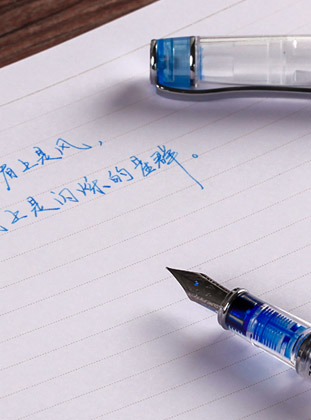 有上是风，
上是闪烁的星群。